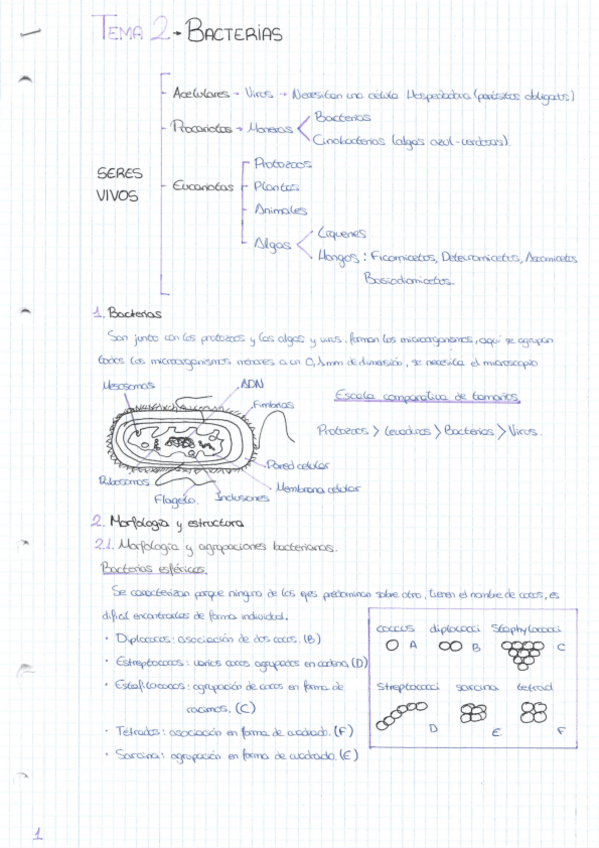 TEMA 2 → BACTERIAS
SERES VIVOS
Acelulares → Virus → Necesitan una célula Hospedadora (parásitos obligatos)
Procariotas → Moneras
Bacterias
Cinobacterias (algas azul-verdosas)
Eucariotas
Protozoos
Plantas
Animales
Algas
Líquenes
Hongos: Ficomicetos, Deteuromicetos, Ascomicetos
Basidiomicetos.
1. Bacterias
Son junto con los protozoos y las algas y virus, forman los microorganismos, aquí se agrupan
todos los microorganismos menores a un 0,1mm de dimensión, se necesita el microscopio
Mesosomas
ADN
Fimbrias
Pared celular
Membrana celular
Ribosomas
Flagelo.
Inclusiones
Escala comparativa de tamaños
Protozoos > Levaduras > Bacterias > Virus.
2. Morfología y estructura
2.1. Morfología y agrupaciones bacterianas.
Bacterias esféricas.
Se caracterizan porque ninguno de los ejes predominan sobre otro, tienen el nombre de cocos, es
difícil encontrarlas de forma individual.
• Diplococos: asociación de dos cocos. (B)
• Estreptococos: varios cocos agrupados en cadena. (D)
• Estafilococos: agrupación de cocos en forma de
racimos. (C)
• Tétrados: asociación en forma de cuadrado. (F)
• Sarcina: agrupación en forma de cuadrado. (E)
coccus diplococci Staphylococci
A B C
Streptococci sarcina tetrad
D E F
1